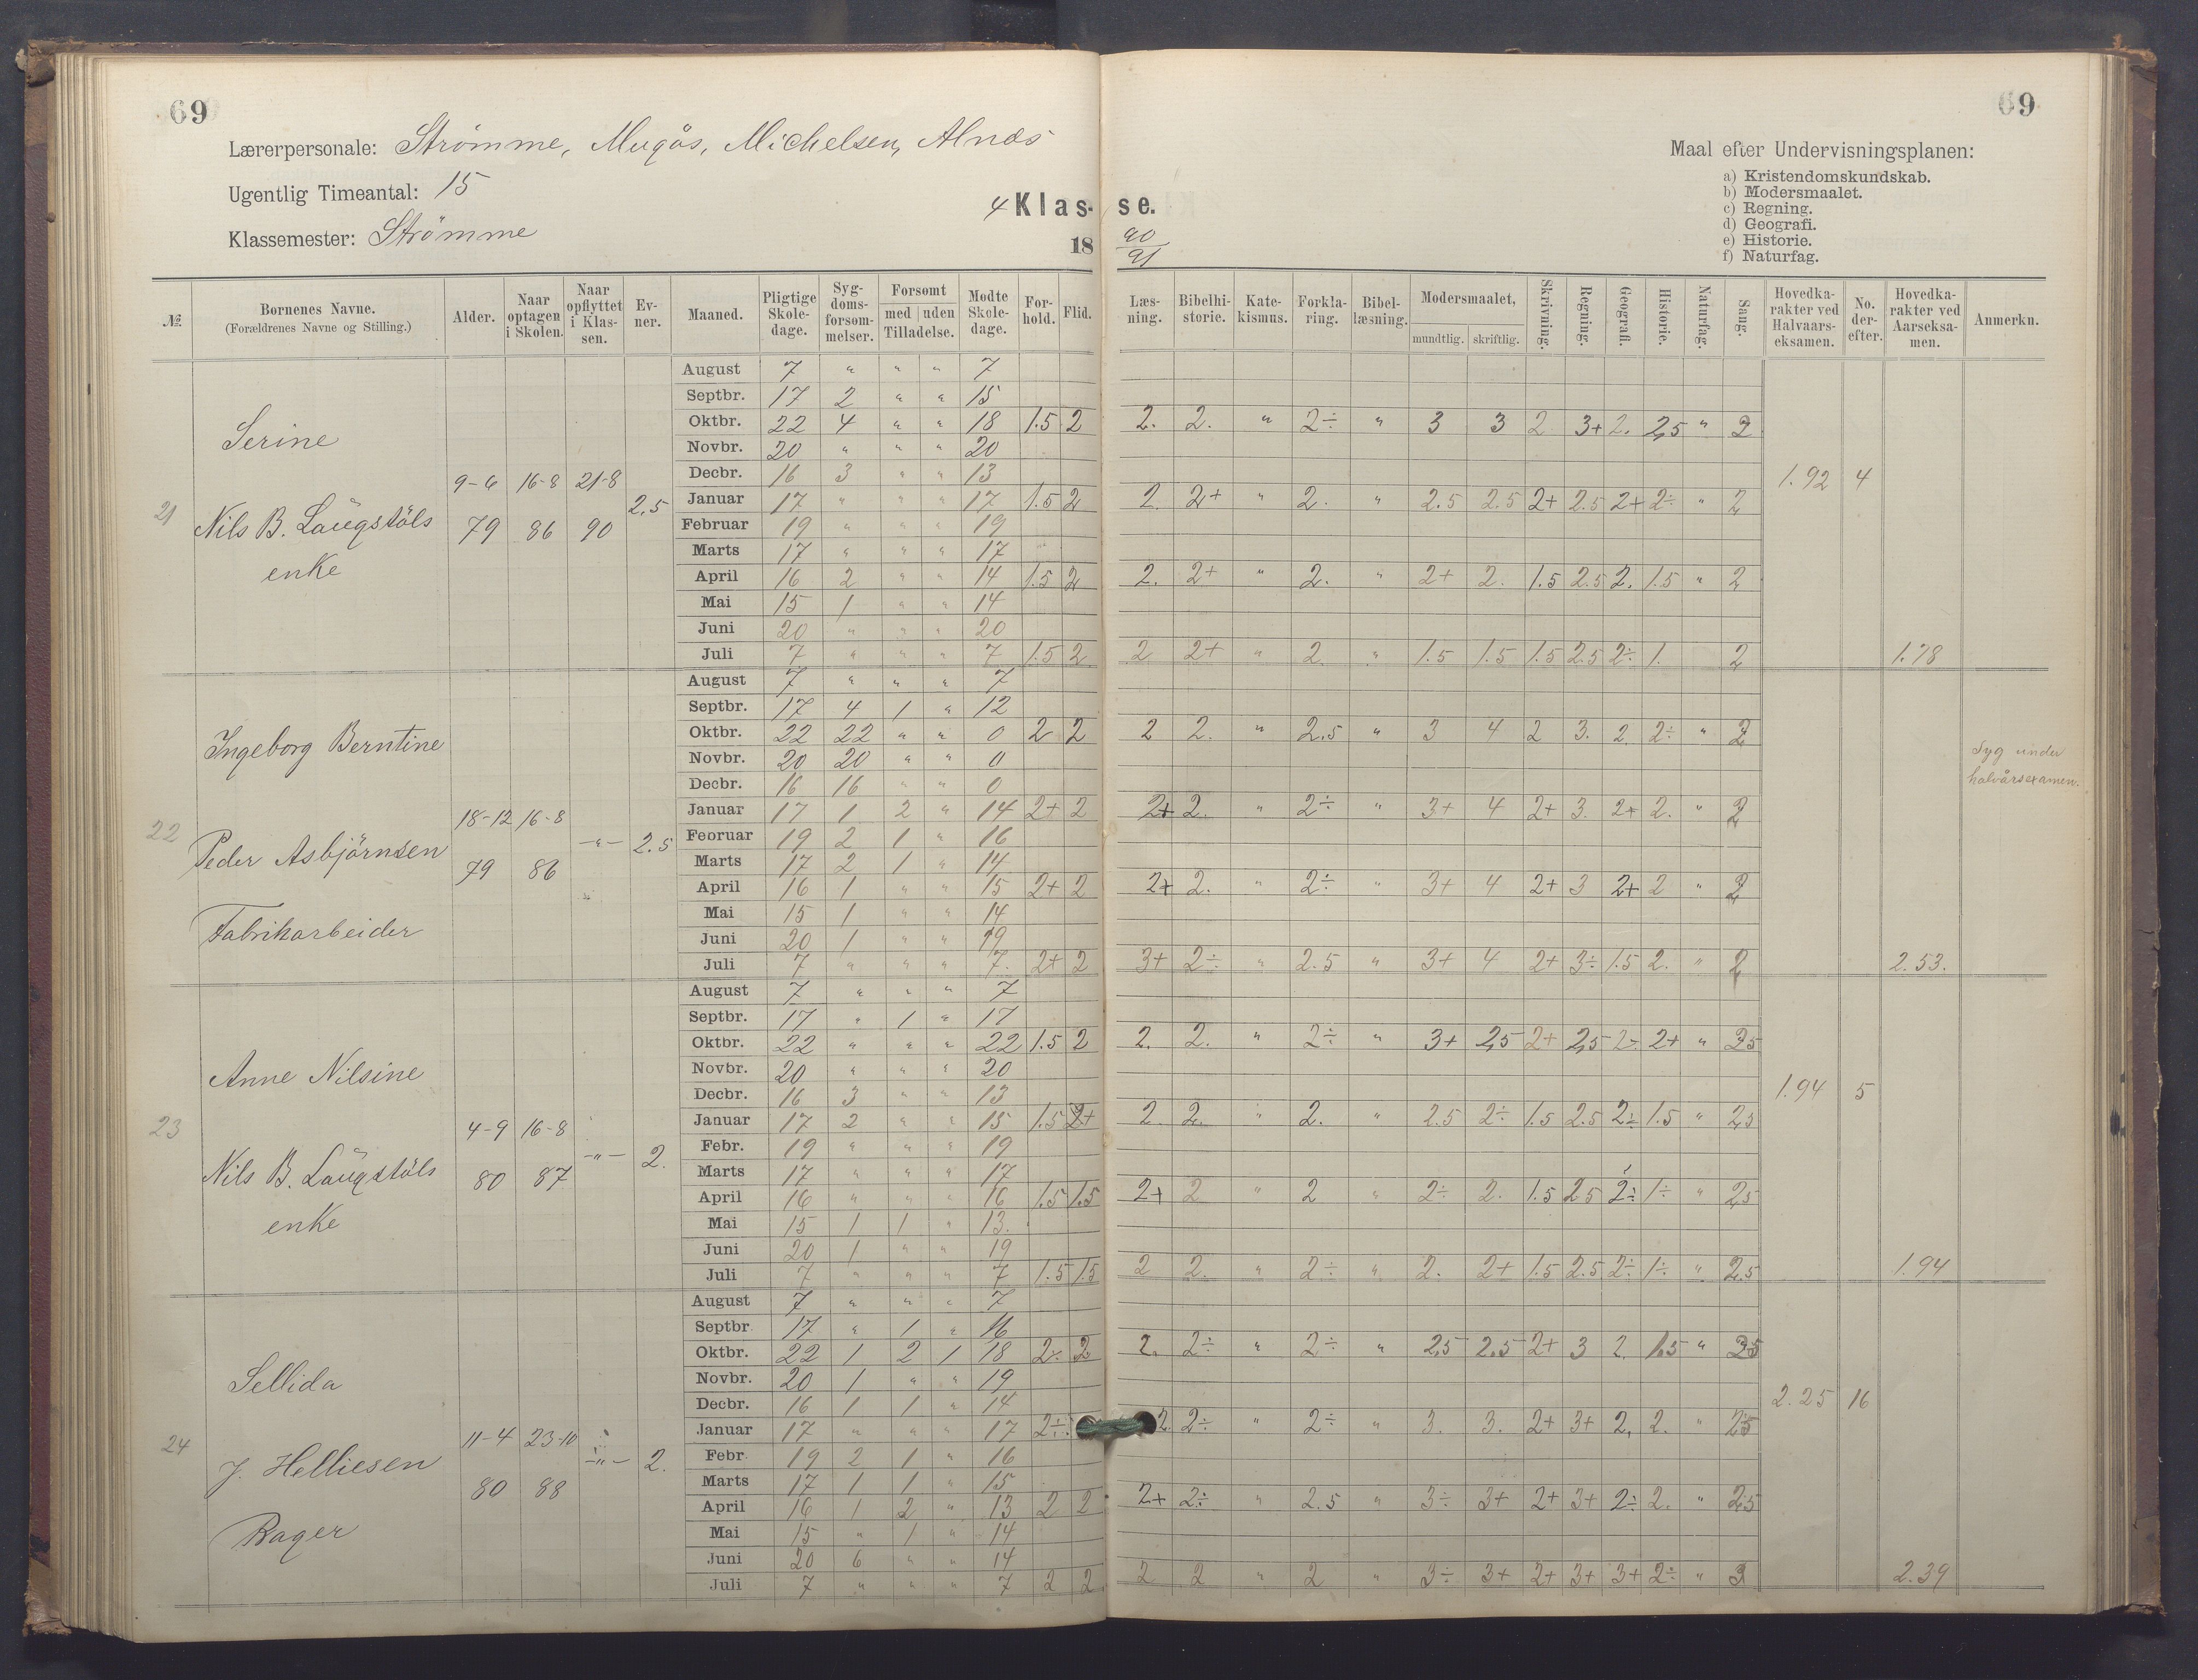 69
69
Lærerpersonale: Strømme, Mugås, Michelsen, Alnæs
Ugentlig Timeantal: 15
Klassemester: Strømme
4 Klasse.
18 90/91
Maal efter Undervisningsplanen:
a) Kristendomskundskab.
b) Modersmaalet.
c) Regning.
d) Geografi.
e) Historie.
f) Naturfag.
№ Børnenes Navne. (Forældrenes Navne og Stilling.) Alder. Naar optagen i Skolen. Naar opflyttet i Klassen. Evner. Maaned. Pligtige Skoledage. Sygdomsforsømmelser. Forsømt med uden Tilladelse. Mødte Skoledage. Forhold. Flid. Læsning. Bibelhistorie. Katekismus. Forklaring. Bibellæsning. Modersmaalet, mundtlig. skriftlig. Skrivning. Regning. Geografi. Historie. Naturfag. Sang. Hovedkarakter ved Halvaarseksamen. No. derefter. Hovedkarakter ved Aarseksamen. Anmerkn.
21 Serine
Nils B. Laugstöls
enke
9-6 79 16-8 86 21-8 90 2.5
August 7 " " " 7
Septbr. 17 2 " " 15
Oktbr. 22 4 " " 18 1.5 2 2. 2. " 2÷ " 3 3 2 3+ 2. 2,5 " 2
Novbr. 20 " " " 20
Decbr. 16 3 " " 13 1.92 4
Januar 17 " " " 17 1.5 2 2. 2+ " 2. " 2.5 2.5 2+ 2.5 2+ 2÷ " 2
Februar 19 " " " 19
Marts 17 " " " 17
April 16 2 " " 14 1.5 2 2. 2+ " 2. " 2+ 2. 1.5 2.5 2. 1.5 " 2
Mai 15 1 " " 14
Juni 20 " " " 20
Juli 7 " " " 7 1.5 2 2 2+ " 2. " 1.5 1.5 1.5 2.5 2÷ 1. 2 1.78
22 Ingeborg Berntine
Peder Asbjörnsen
Fabrikarbeider
18-12 79 16-8 86 -"- 2.5
August 7 " " " 7
Septbr. 17 4 1 " 12
Oktbr. 22 22 " " 0 2 2 2 2. " 2.5 " 3 4 2 3. 2. 2÷ " 2
Syg under
halvårsexamen.
Novbr. 20 20 " " 0
Decbr. 16 16 " " 0
Januar 17 1 2 " 14 2+ 2 2+ 2. " 2÷ " 3+ 4 2+ 3. 2+ 2. " 2
Februar 19 2 1 " 16
Marts 17 2 1 " 14
April 16 1 " " 15 2+ 2 2+ 2. " 2÷ " 3+ 4 2+ 3 2+ 2 " 2
Mai 15 1 " " 14
Juni 20 1 " " 19
Juli 7 " " " 7. 2+ 2 3+ 2÷ " 2.5 " 3+ 4 2+ 3÷ 1.5 2. " 2 2.53.
23 Anne Nilsine
Nils B. Laugstöls
enke
4-9 80 16-8 87 -"- 2.
August 7 " " " 7
Septbr. 17 " 1 " 17
Oktbr. 22 " " " 22 1.5 2 2. 2. " 2÷ " 3+ 2,5 2+ 2,5 2÷ 2+ " 25
Novbr. 20 " " " 20
Decbr. 16 3 " " 13 1.94 5
Januar 17 2 " " 15 1.5 2+ 2. 2. " 2. " 2.5 2÷ 1.5 2.5 2÷ 1.5 " 2,5
Febr. 19 " " " 19
Marts 17 " " " 17
April 16 " " " 16 1.5 1.5 2+ 2 " 2 " 2÷ 2. 1.5 25 2÷ 1÷ " 25
Mai 15 1 1 " 13.
Juni 20 1 " " 19
Juli 7 " " " 7 1.5 1.5 2 2. " 2÷ " 2. 2+ 1.5 2.5 2÷ 1÷ " 2.5 1.94
24 Sellida
J. Helliesen
Bager
11-4 80 23-10 88 -"- 2.
August 7 " " " 7
Septbr. 17 " 1 " 16
Oktbr. 22 1 2 1 18 2÷ 2 2. 2÷ " 2÷ " 2,5 2.5 2+ 3 2. 1.5 " 25
Novbr. 20 1 " " 19
Decbr. 16 1 1 " 14 2.25 16
Januar 17 " " " 17 2÷ 2. 2÷ " 2÷ " 3. 3. 2+ 3+ 2. 2. " 25
Febr. 19 2 1 " 16
Marts 17 1 1 " 15
April 16 1 2 " 13 2 2 2+ 2÷ " 2.5 " 3÷ 3+ 2+ 3+ 2÷ 2. " 2,5
Mai 15 " 1 " 14
Juni 20 6 " " 14
Juli 7 " " " 7 2 2 2 2 " 2 " 3÷ 3+ 2+ 3+ 3+ 2÷ " 3 2.39